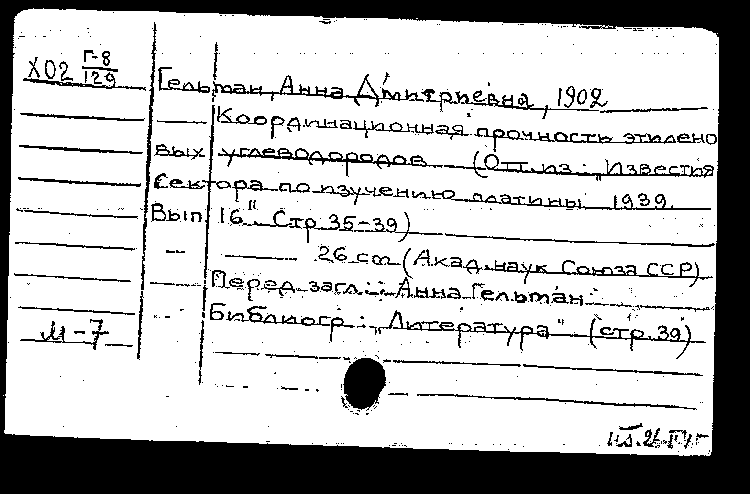 Х02 Г-8
129
Гельман, Анна Дмитриевна, 1902
Координационная прочность этилено
вых углеводородов (Отт. из: "Известия
Сектора по изучению платины 1939.
Вып. 16". Стр 35-39)
26 cm (Акад. наук Союза ССР)
Перед загл.: Анна Гельман
Библиогр.: "Литература" (стр. 39)
М-7